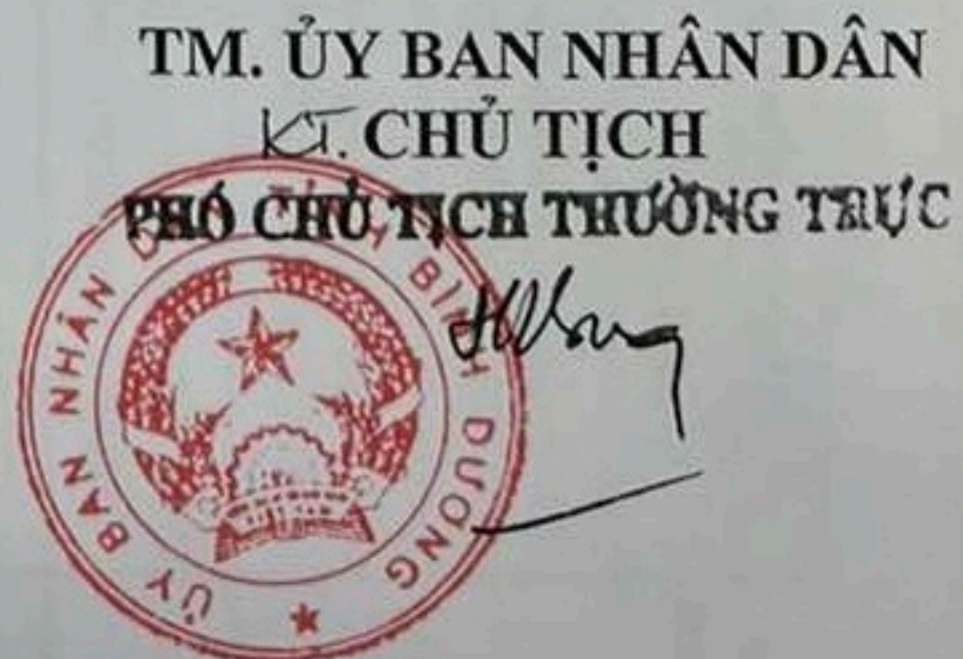 TM. ỦY BAN NHÂN DÂN
KT. CHỦ TỊCH
PHÓ CHỦ TỊCH THƯỜNG TRỰC
ỦY BAN NHÂN DÂN TỈNH BÌNH DƯƠNG
VIỆT NAM